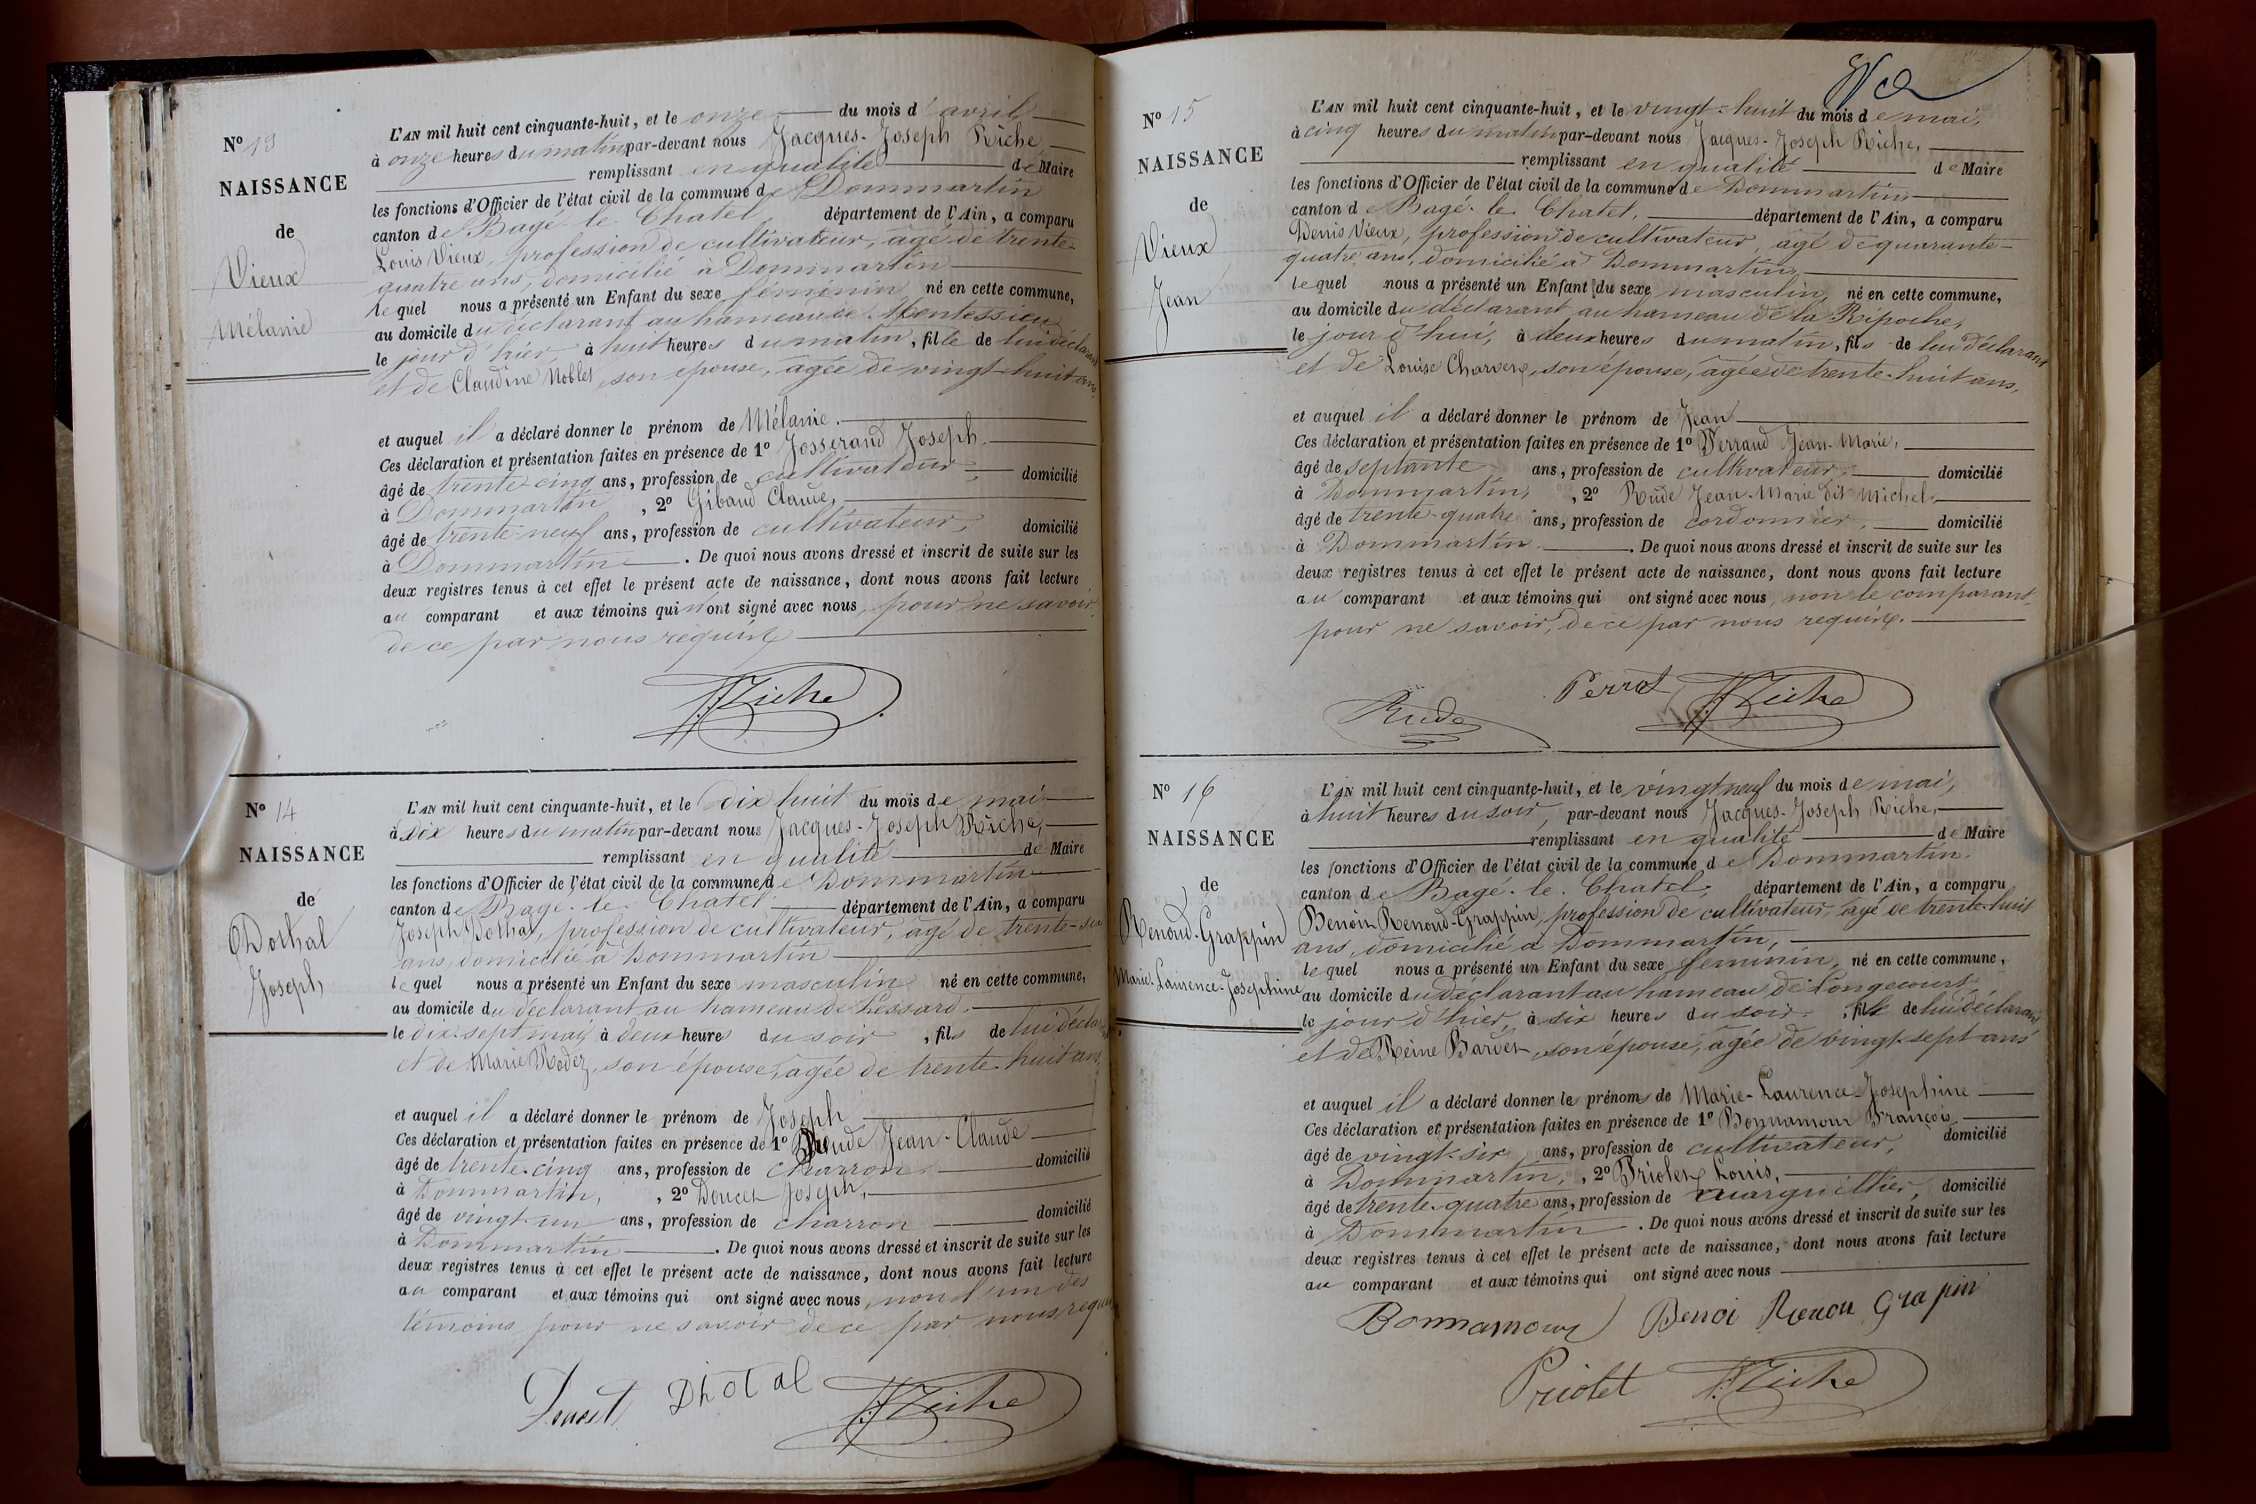 Nº 13
NAISSANCE
de
Vieux
Mélanie
L'AN mil huit cent cinquante-huit, et le onze du mois d'avril
à onze heures du matin par-devant nous Jacques-Joseph Riche,
remplissant en qualité de Maire
les fonctions d'Officier de l'état civil de la commune de Dommartin
canton de Bagé-le-Chatel, département de l'Ain, a comparu
Louis Vieux, profession de cultivateur, âgé de trente-
quatre ans, domicilié à Dommartin
lequel nous a présenté un Enfant du sexe féminin, né en cette commune,
au domicile du déclarant au hameau de
le jour d'hier, à huit heures du matin, fille de lui déclarant
et de Claudine Noblet, son épouse, âgée de vingt-huit ans.
et auquel il a déclaré donner le prénom de Mélanie.
Ces déclaration et présentation faites en présence de 1º Josserand Joseph.
âgé de trente-cinq ans, profession de cultivateur, domicilié
à Dommartin, 2º Gibaud Claude,
âgé de trente-neuf ans, profession de cultivateur, domicilié
à Dommartin. De quoi nous avons dressé et inscrit de suite sur les
deux registres tenus à cet effet le présent acte de naissance, dont nous avons fait lecture
au comparant et aux témoins qui n'ont signé avec nous, pour ne savoir
de ce par nous requis
J. Riche
Nº 14
NAISSANCE
de
Dothal
Joseph
L'AN mil huit cent cinquante-huit, et le dix huit du mois de mai
à dix heures du matin par-devant nous Jacques-Joseph Riche,
remplissant en qualité de Maire
les fonctions d'Officier de l'état civil de la commune de Dommartin
canton de Bagé-le-Chatel département de l'Ain, a comparu
Joseph Dothal, profession de cultivateur, âgé de trente-six
ans, domicilié à Dommartin
lequel nous a présenté un Enfant du sexe masculin né en cette commune,
au domicile du déclarant au hameau de
le dix-sept mai, à deux heures du soir, fils de lui déclarant
et de Marie Rodez, son épouse, âgée de trente-huit ans,
et auquel il a déclaré donner le prénom de Joseph
Ces déclaration et présentation faites en présence de 1º Rude Jean-Claude
âgé de trente-cinq ans, profession de charron domicilié
à Dommartin, 2º Doucet Joseph,
âgé de vingt-un ans, profession de charron domicilié
à Dommartin. De quoi nous avons dressé et inscrit de suite sur les
deux registres tenus à cet effet le présent acte de naissance, dont nous avons fait lecture
au comparant et aux témoins qui ont signé avec nous, non l'un des
témoins pour ne savoir de ce par nous requis
Doucet Dhotal J. Riche
Nº 15
NAISSANCE
de
Vieux
Jean
L'AN mil huit cent cinquante-huit, et le vingt-huit du mois de mai,
à cinq heures du matin par-devant nous Jacques-Joseph Riche,
remplissant en qualité de Maire
les fonctions d'Officier de l'état civil de la commune de Dommartin
canton de Bagé-le-Chatel, département de l'Ain, a comparu
Denis Vieux, profession de cultivateur, âgé de quarante-
quatre ans, domicilié à Dommartin,
lequel nous a présenté un Enfant du sexe masculin, né en cette commune,
au domicile du déclarant au hameau de la Ripoche,
le jour d'hui, à deux heures du matin, fils de lui déclarant
et de Louise Charvet, son épouse, âgée de trente-huit ans,
et auquel il a déclaré donner le prénom de Jean
Ces déclaration et présentation faites en présence de 1º Perraud Jean-Marie,
âgé de septante ans, profession de cultivateur, domicilié
à Dommartin, 2º Rude Jean-Marie dit Michel,
âgé de trente-quatre ans, profession de cordonnier, domicilié
à Dommartin. De quoi nous avons dressé et inscrit de suite sur les
deux registres tenus à cet effet le présent acte de naissance, dont nous avons fait lecture
au comparant et aux témoins qui ont signé avec nous, non le comparant
pour ne savoir, de ce par nous requis.
Rude Perrot J. Riche
Nº 16
NAISSANCE
de
Renoud-Grappin
Marie-Laurence-Josephine
L'AN mil huit cent cinquante-huit, et le vingt neuf du mois de mai,
à huit heures du soir, par-devant nous Jacques-Joseph Riche,
remplissant en qualité de Maire
les fonctions d'Officier de l'état civil de la commune de Dommartin.
canton de Bagé-le-Chatel, département de l'Ain, a comparu
Benoit Renoud-Grappin, profession de cultivateur, âgé de trente-huit
ans, domicilié à Dommartin,
lequel nous a présenté un Enfant du sexe féminin, né en cette commune,
au domicile du déclarant au hameau de Longecourt
le jour d'hier, à six heures du soir, fille de lui déclarant
et de Reine Bardet, son épouse, âgée de vingt-sept ans
et auquel il a déclaré donner les prénoms de Marie-Laurence-Josephine
Ces déclaration et présentation faites en présence de 1º Bonnamour François,
âgé de vingt-six ans, profession de cultivateur, domicilié
à Dommartin, 2º Priolet Louis,
âgé de trente-quatre ans, profession de marguillier, domicilié
à Dommartin. De quoi nous avons dressé et inscrit de suite sur les
deux registres tenus à cet effet le présent acte de naissance, dont nous avons fait lecture
au comparant et aux témoins qui ont signé avec nous
Bonnamour Benoi Renou Grapin
Priolet J. Riche